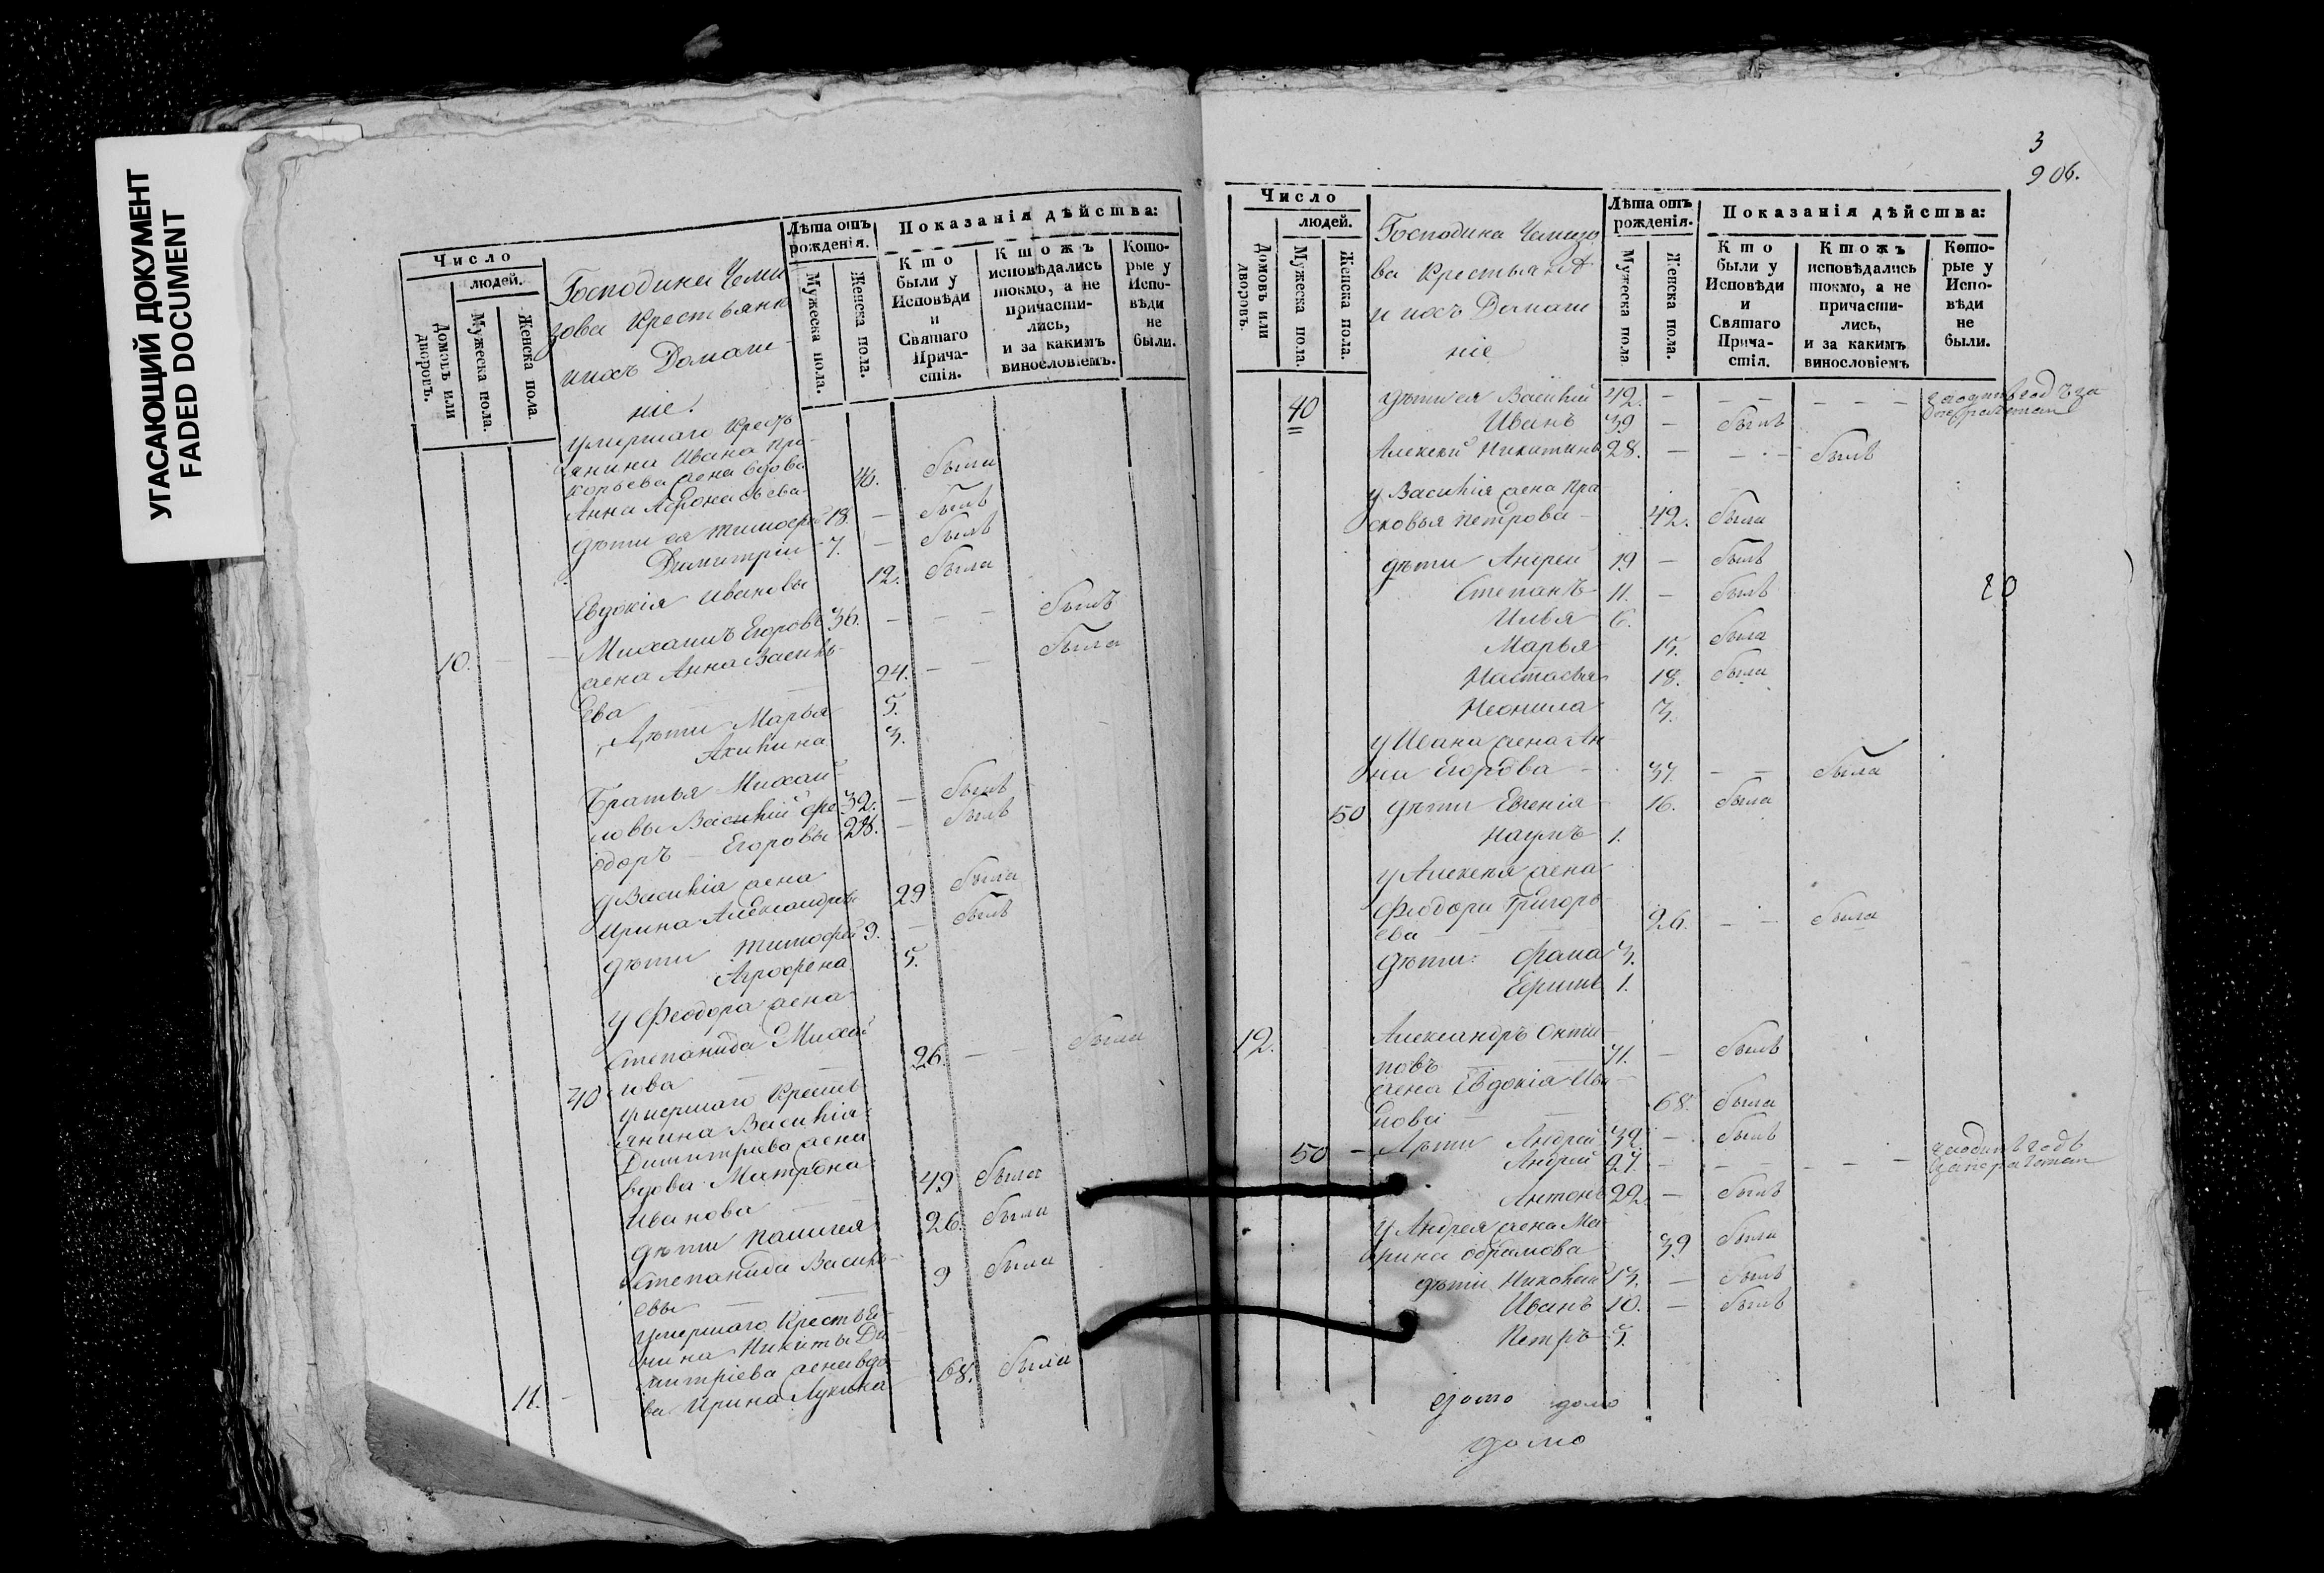 УГАСАЮЩИЙ ДОКУМЕНТ
FADED DOCUMENT
Число
людей.
Домовъ или дворовъ.
Мужеска пола.
Женска пола.
Господина Чеми
зова Крестьяне
и ихъ Домаш-
ніе.
Лѣта отъ рожденія.
Мужеска пола.
Женска пола.
Показанія дѣйства:
Кто были у Исповѣди и Святаго Причастія.
Ктожъ исповѣдались токмо, а не причастились, и за какимъ винословіемъ.
Которые у Исповѣди не были.
умершаго Кресть
янина Ивана Про-
кофьева жена вдова
Анна Афонасьева 40. была
дѣти ея Тимофей 18. — былъ
Димитрій 7. — былъ
Евдокія Ивановы 12. была
10. — — Михаилъ Егоровъ 36. — — — былъ
жена Анна Василь-
ева — — 24. — — была
Дѣти Марья 5.
Акилина 3.
Братья Михаи-
ловы Василій Фе 32. — былъ
одоръ — Егоровы 28. — былъ
у Василія жена
Ирина Александрова 29 была
дѣти Тимофей 9. — былъ
Агрофена 5.
у Феодора жена
Степанида Михай
40 лова — — 26. — — была
умершаго Кресть
янина Василія
Димитрева жена
вдова Матрона
Иванова — 49 была
дѣти Палагея 26. была
Степанида Василь-
евы — — 9 была
умершаго Крестья
нина Никиты Ди-
митріева жена вдо-
11. — ва Ирина Лукина 68. была
3
906.
Число
людей.
Домовъ или дворовъ.
Мужеска пола.
Женска пола.
Господина Чемизо
ва Крестьяне
и ихъ Домаш
ніе
Лѣта отъ рожденія.
Мужеска пола
Женска пола.
Показанія дѣйства:
Кто были у Исповѣди и Святаго Причастія.
Ктожъ исповѣдались токмо, а не причастились, и за какимъ винословіемъ
Которые у Исповѣди не были.
40 дѣти ея Василій 42. — — — — — —
Иванъ 39 — былъ
Алексѣй Никитины 28. — — - — былъ
у Василія жена Пра
сковья Петрова — 42. была
дѣти Андрей 19 — былъ
Степанъ 11. — былъ
20
Илья 6.
Марья 15. была
Настасья 18. была
Неонила 3.
у Ивана жена Ан
на Егорова — 37. — — была
50 дѣти Евгенія 16. была
Наумъ 1.
у Алексея жена
Феодора Григорь-
ева — — — 26. — — была
дѣти: Фома 3.
Ефимъ 1.
12. Александръ
повъ — 71. — былъ
жена Евдокія Ива-
нова — 68. была
50 — Дѣти Андрей 39 — былъ
Андрей 27. — — — — — —
Антонъ 22. — былъ
у Андрея жена Ма-
рина Обрамова 39 была
дѣти Николай 13. — былъ
Иванъ 10. — былъ
Петръ 5.